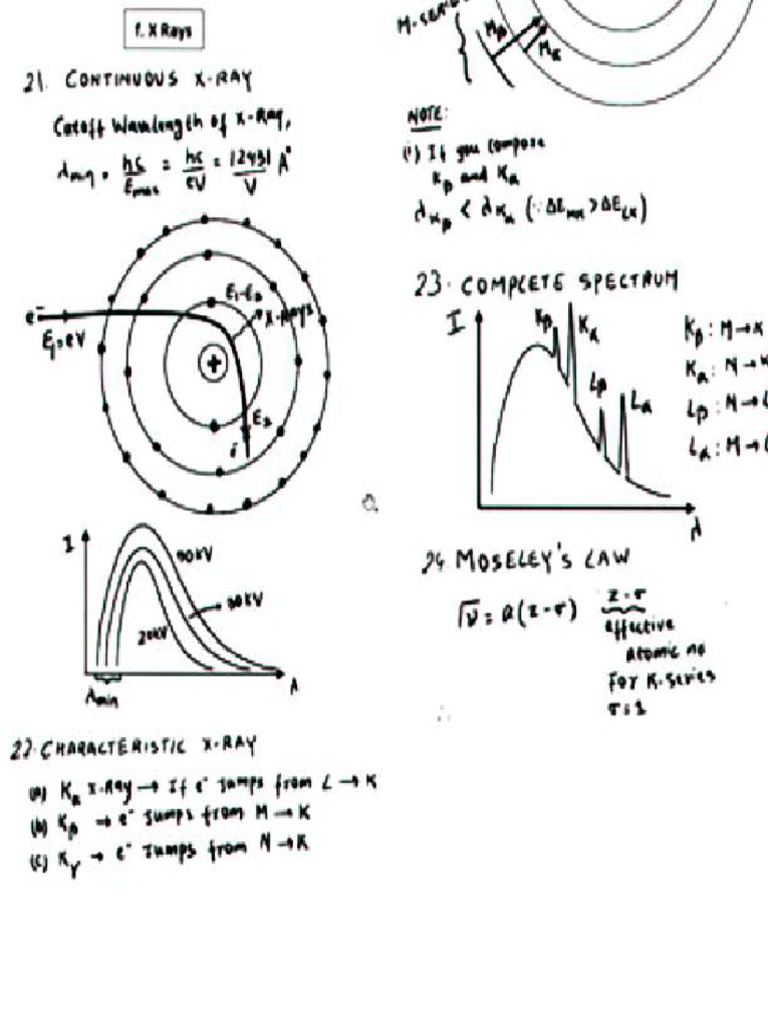 f. X Rays
21. CONTINUOUS X-RAY
Cutoff Wavelength of X-Ray,
λmin = hc/Emax = hc/eV = 12431/V A°
E1-E2
X-RAYS
e-
E1=eV
E2
e-
I
20kV
λ
λmin
22. CHARACTERISTIC X-RAY
(a) Kα X-Ray → If e- jumps from L → K
(b) Kβ → e- jumps from M → K
(c) Kγ → e- jumps from N → K
M-SERIES
Mβ
Mα
NOTE:
(i) If you compose
Kβ and Kα
λKβ < λKα (∵ ΔEMK > ΔELK)
23. COMPLETE SPECTRUM
I
Kβ
Kα
Lβ
Lα
λ
Kβ : M → K
Kα : N →
Lβ : N → L
Lα : M → L
24. MOSELEY'S LAW
√ν = a(z-σ)
z-σ
effective
atomic no
For K-series
σ=1